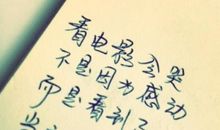 看电影会哭
不是因为感动
而是看到了